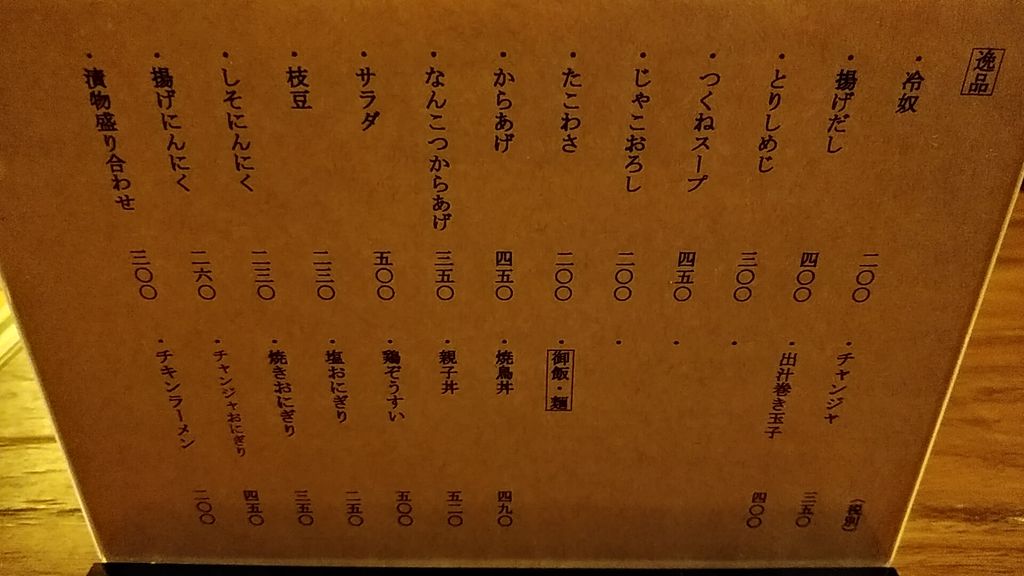 逸品
・冷奴 二〇〇
・揚げだし 四〇〇
・とりしめじ 三〇〇
・つくねスープ 四五〇
・じゃこおろし 二〇〇
・たこわさ 二〇〇
・からあげ 四五〇
・なんこつからあげ 三五〇
・サラダ 五〇〇
・枝豆 二三〇
・しそにんにく 二三〇
・揚げにんにく 二六〇
・漬物盛り合わせ 三〇〇
(税別)
・チャンジャ 三五〇
・出汁巻き玉子 四〇〇
・
・
・
御飯・麺
・焼鳥丼 四九〇
・親子丼 五二〇
・鶏ぞうすい 五〇〇
・塩おにぎり 二五〇
・焼きおにぎり 三五〇
・チャンジャおにぎり 四五〇
・チキンラーメン 二〇〇